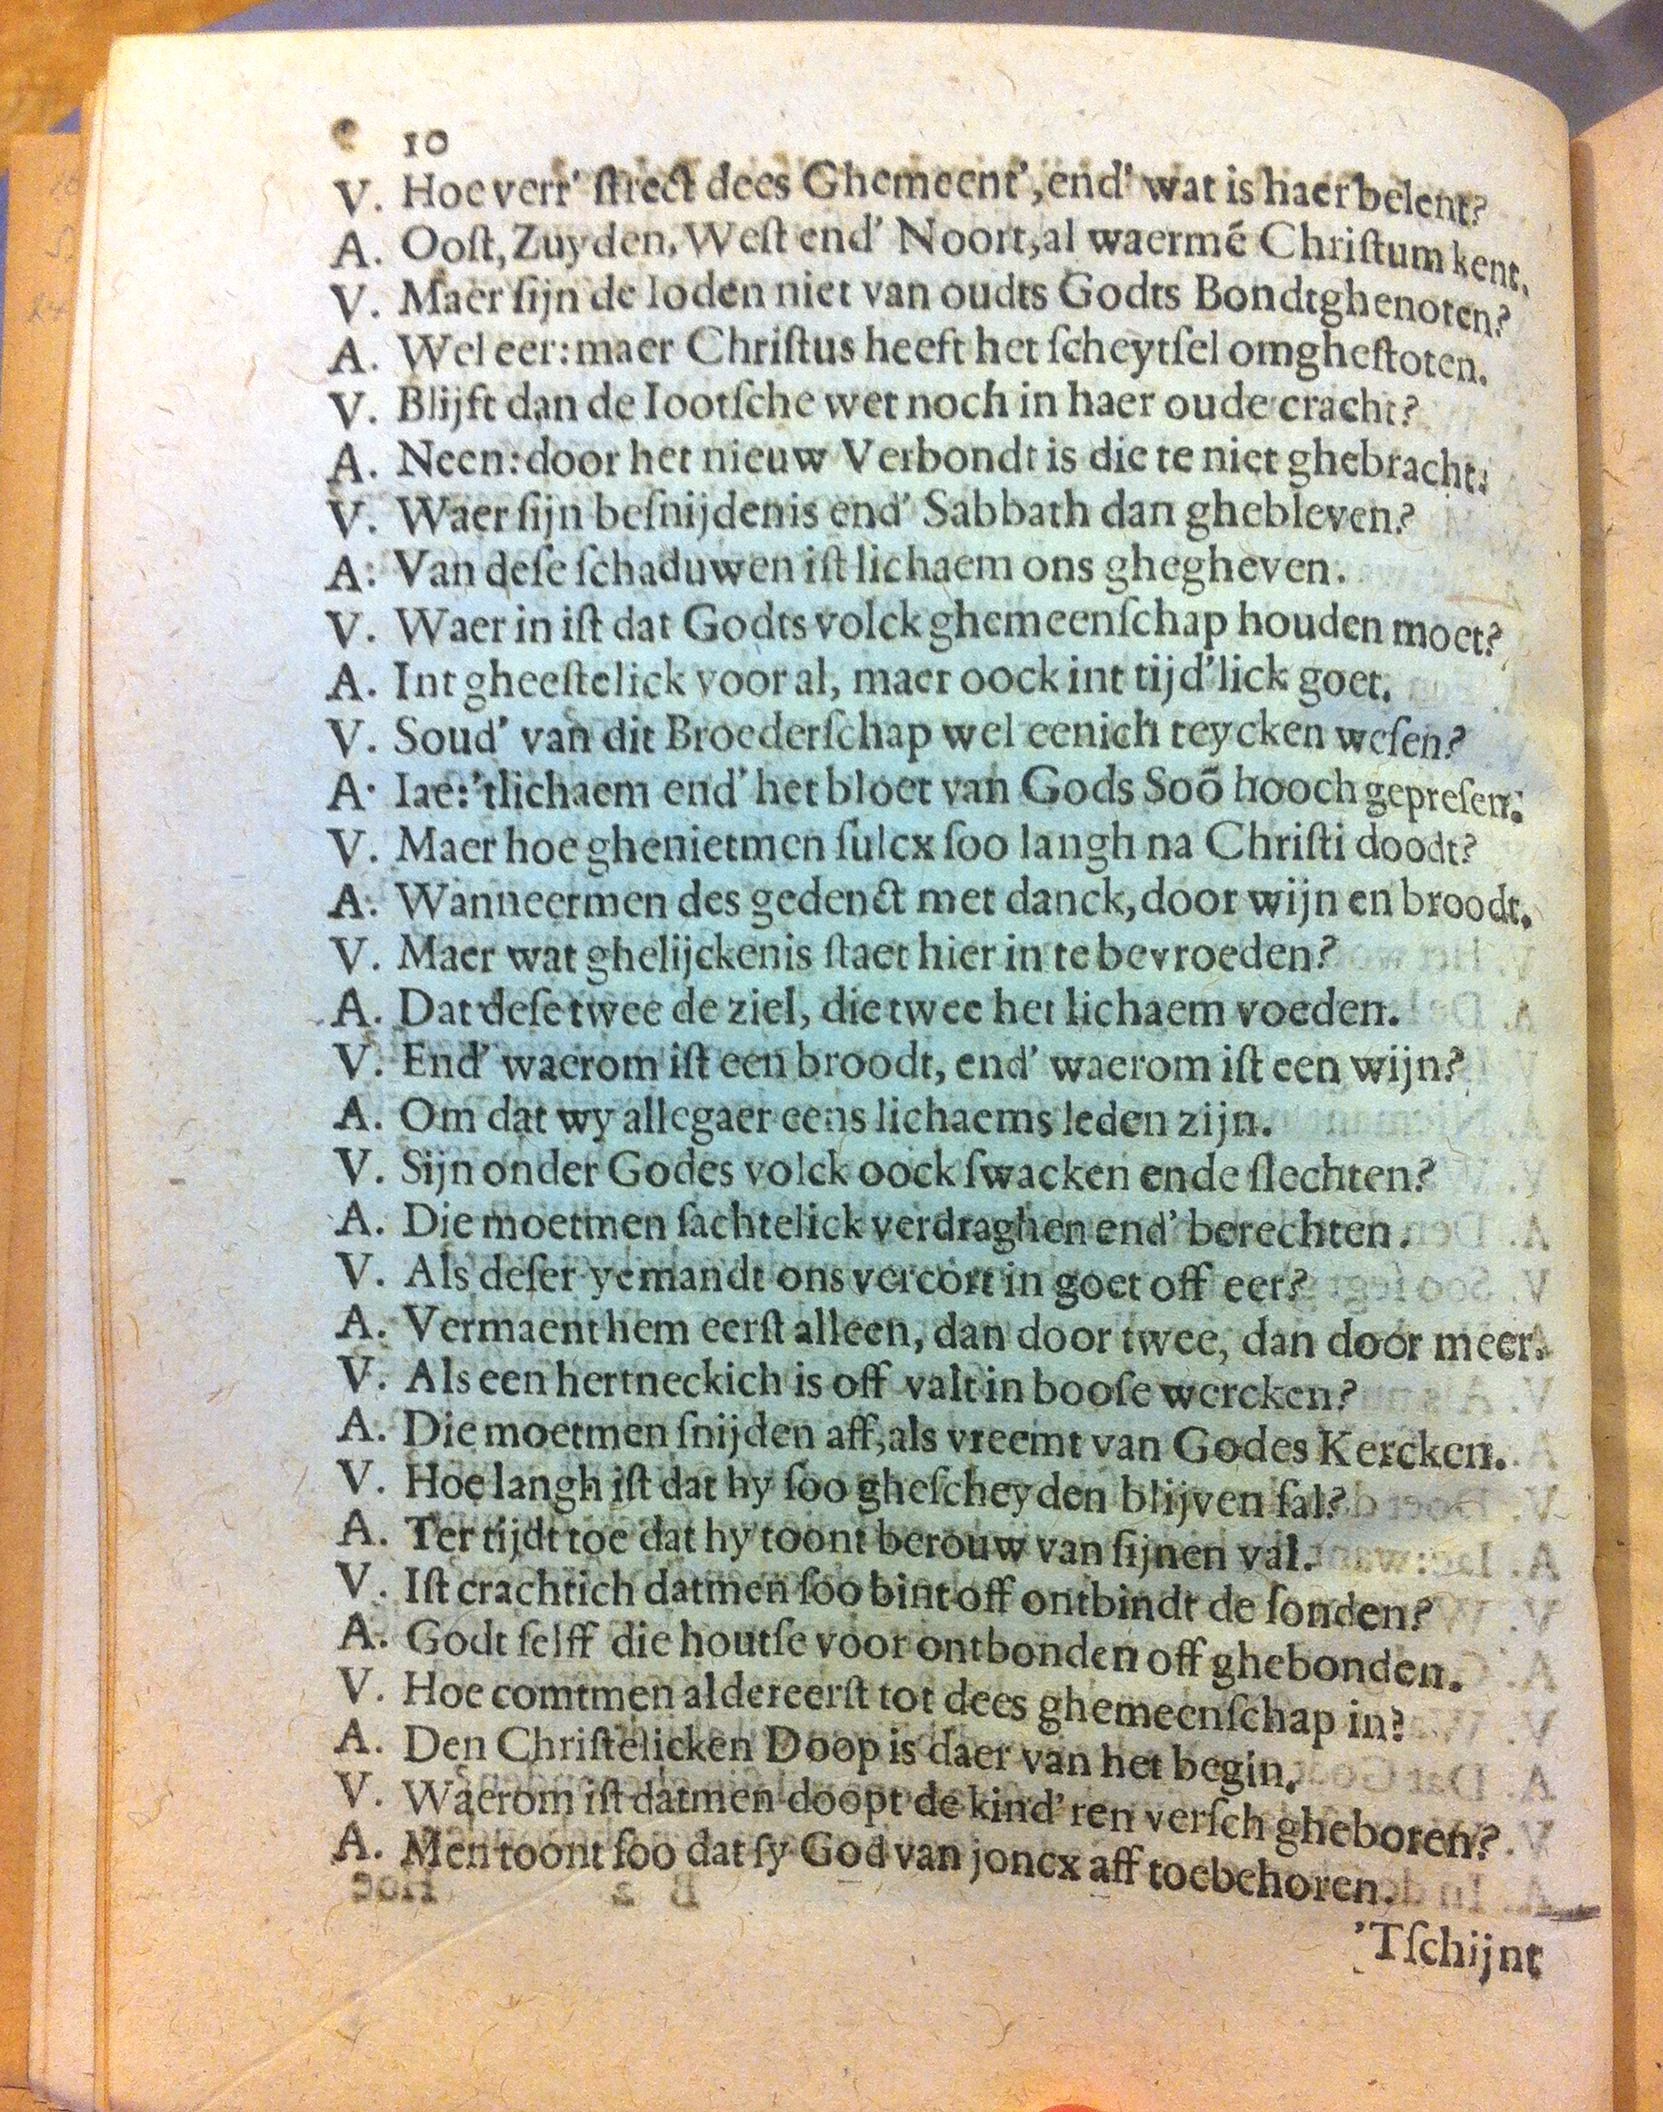 10
V. Hoe verr' ſtrect dees Ghemeent', end' wat is haer belent?
A. Ooſt, Zuyden, Weſt end' Noort, al waermē Chriſtum kent.
V. Maer ſijn de Ioden niet van oudts Godts Bondtghenoten?
A. Wel eer: maer Chriſtus heeft het ſcheytſel omgheſtoten.
V. Blijft dan de Iootſche wet noch in haer oude cracht?
A. Neen: door het nieuw Verbondt is die te niet ghebracht.
V. Waer ſijn beſnijdenis end' Sabbath dan ghebleven?
A: Van deſe ſchaduwen iſt lichaem ons ghegheven.
V. Waer in iſt dat Godts volck ghemeenſchap houden moet?
A. Int gheeſtelick voor al, maer oock int tijd'lick goet.
V. Soud' van dit Broederſchap wel eenich teycken weſen?
A. Iae: 'tlichaem end' het bloet van Gods Soō hooch gepreſen.
V. Maer hoe ghenietmen ſulcx ſoo langh na Chriſti doodt?
A. Wanneermen des gedenct met danck, door wijn en broodt.
V. Maer wat ghelijckenis ſtaet hier in te bevroeden?
A. Dat deſe twee de ziel, die twee het lichaem voeden.
V. End' waerom iſt een broodt, end' waerom iſt een wijn?
A. Om dat wy allegaer eens lichaems leden zijn.
V. Sijn onder Godes volck oock ſwacken ende ſlechten?
A. Die moetmen ſachtelick verdraghen end' berechten.
V. Als deſer yemandt ons vercort in goet off eer?
A. Vermaent hem eerſt alleen, dan door twee, dan door meer.
V. Als een hertneckich is off valt in booſe wercken?
A. Die moetmen ſnijden aff, als vreemt van Godes Kercken.
V. Hoe langh iſt dat hy ſoo gheſcheyden blijven ſal?
A. Ter tijdt toe dat hy toont berouw van ſijnen val.
V. Iſt crachtich datmen ſoo bint off ontbindt de ſonden?
A. Godt ſelff die houtſe voor ontbonden off ghebonden.
V. Hoe comtmen aldereerſt tot dees ghemeenſchap in?
A. Den Chriſtelicken Doop is daer van het begin.
V. Waerom iſt datmen doopt de kind'ren verſch gheboren?
A. Men toont ſoo dat ſy God van joncx aff toebehoren.
'Tſchijnt